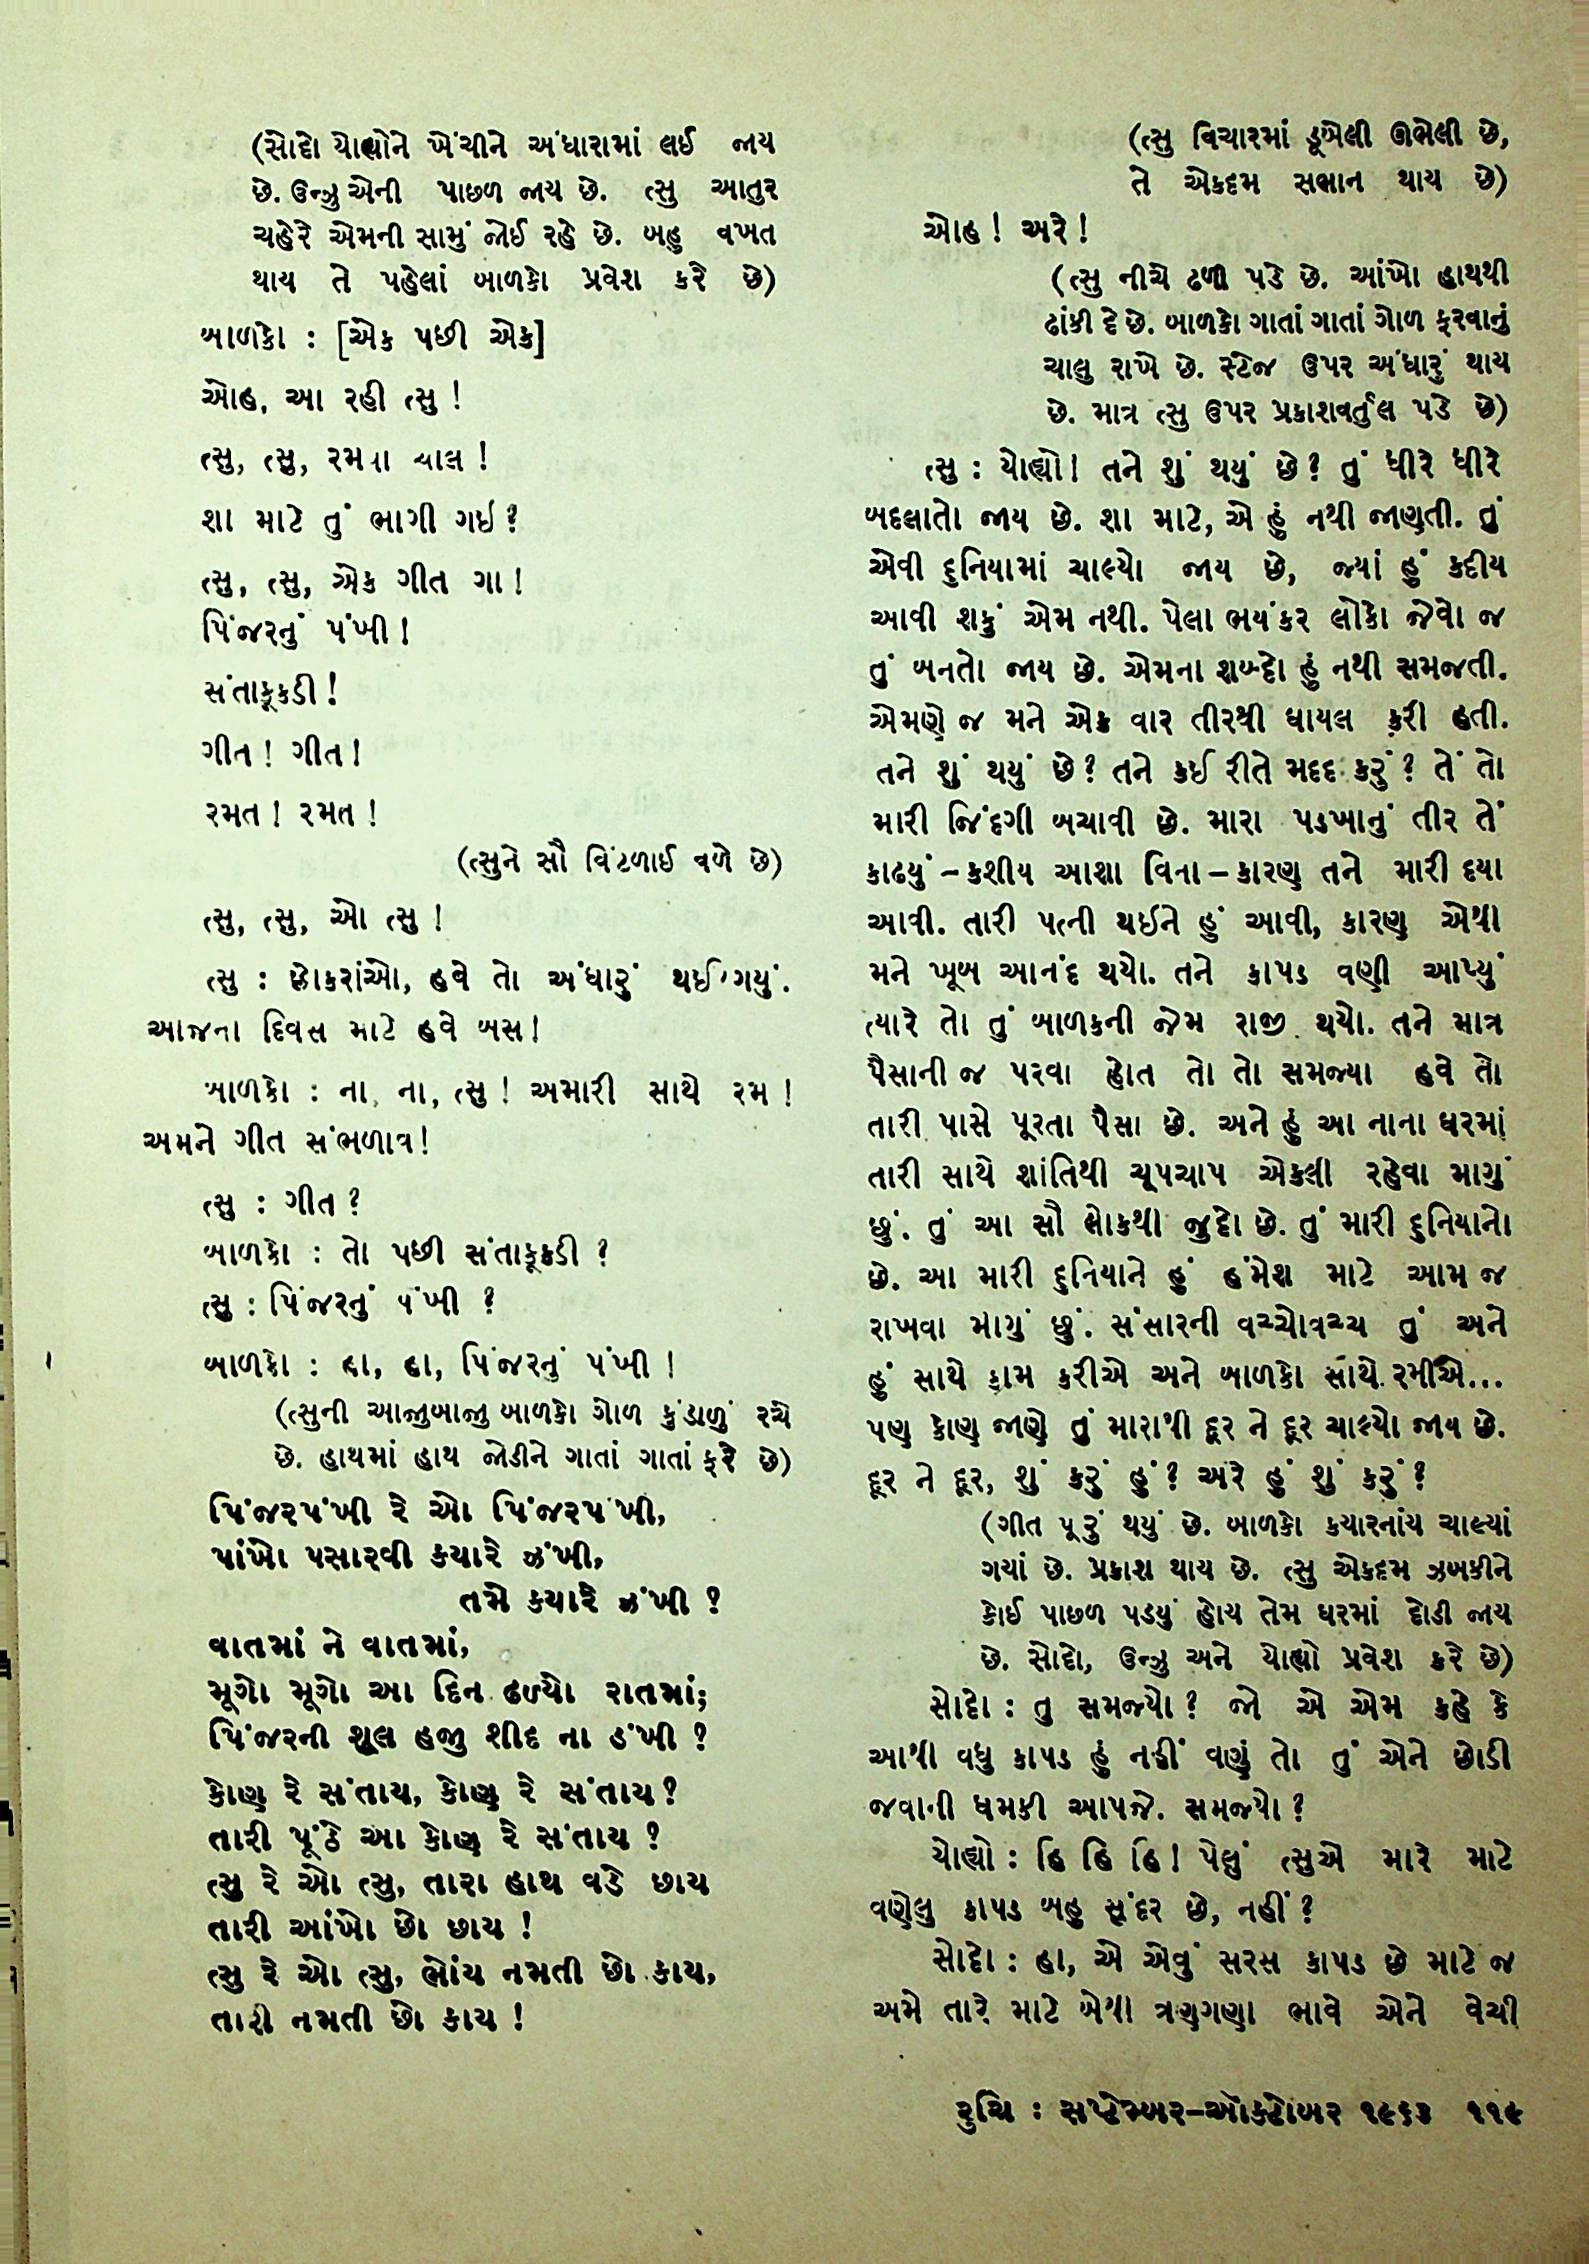 (સોદો યોહ્યોને ખેંચીને અંધારામાં લઈ જાય
છે. ઉન્ઝુ એની પાછળ જાય છે. ત્સુ આતુર
ચહેરે એમની સામું જોઈ રહે છે. બહુ વખત
થાય તે પહેલાં બાળકો પ્રવેશ કરે છે)
બાળકો : [એક પછી એક]
ઓહ, આ રહી ત્સુ !
ત્સુ, ત્સુ, રમવા ચાલ !
શા માટે તું ભાગી ગઇ ?
ત્સુ, ત્સુ, એક ગીત ગા !
પિંજરનું પંખી !
સંતાકૂકડી !
ગીત ! ગીત !
રમત ! રમત !
(ત્સુને સૌ વિંટળાઈ વળે છે)
ત્સુ, ત્સુ, ઓ ત્સુ !
ત્સુ : છોકરાંઓ, હવે તો અંધારું થઈ ગયું.
આજના દિવસ માટે હવે બસ !
બાળકો : ના, ના, ત્સુ ! અમારી સાથે રમ !
અમને ગીત સંભળાવ !
ત્સુ : ગીત ?
બાળકો : તો પછી સંતાકૂકડી ?
ત્સુ : પિંજરનું પંખી ?
બાળકો : હા, હા, પિંજરનું પંખી !
(ત્સુની આજુબાજુ બાળકો ગોળ કુંડાળું રચે
છે. હાથમાં હાથ જોડીને ગાતાં ગાતાં ફરે છે)
પિંજરપંખી રે ઓ પિંજરપંખી,
પાંખો પસારવી કયારે ઝંખી,
તમે કયારે ઝંખી ?
વાતમાં ને વાતમાં,
મૂગો મૂગો આ દિન ઢળ્યો રાતમાં;
પિંજરની શૂલ હજુ શીદ ના ડંખી ?
કોણ રે સંતાય, કોણ રે સંતાય ?
તારી પૂંઠે આ કોણ રે સંતાય ?
ત્સુ રે ઓ ત્સુ, તારા હાથ વડે છાય
તારી આંખો છો છાય !
ત્સુ રે ઓ ત્સુ, ભોંય નમતી છો કાય,
તારી નમતી છો કાય !
(ત્સુ વિચારમાં ડૂબેલી ઊભેલી છે,
તે એકદમ સભાન થાય છે)
ઓહ ! અરે !
(ત્સુ નીચે ઢળી પડે છે. આંખો હાથથી
ઢાંકી દે છે. બાળકો ગાતાં ગાતાં ગોળ ફરવાનું
ચાલુ રાખે છે. સ્ટેજ ઉપર અંધારું થાય
છે. માત્ર ત્સુ ઉપર પ્રકાશવર્તુલ પડે છે)
ત્સુ : યોહ્યો ! તને શું થયું છે ? તું ધીરે ધીરે
બદલાતો જાય છે. શા માટે, એ હું નથી જાણતી. તું
એવી દુનિયામાં ચાલ્યો જાય છે, જ્યાં હું કદીય
આવી શકું એમ નથી. પેલા ભયંકર લોકો જેવો જ
તું બનતો જાય છે. એમના શબ્દો હું નથી સમજતી.
એમણે જ મને એક વાર તીરથી ઘાયલ કરી હતી.
તને શું થયું છે ? તને કઈ રીતે મદદ કરું ? તેં તો
મારી જિંદગી બચાવી છે. મારા પડખાનું તીર તેં
કાઢયું – કશીય આશા વિના – કારણ તને મારી દયા
આવી. તારી પત્ની થઈને હું આવી, કારણ એથી
મને ખૂબ આનંદ થયો. તને કાપડ વણી આપ્યું
ત્યારે તો તું બાળકની જેમ રાજી થયો. તને માત્ર
પૈસાની જ પરવા હોત તો તો સમજ્યા હવે તો
તારી પાસે પૂરતા પૈસા છે. અને હું આ નાના ઘરમાં
તારી સાથે શાંતિથી ચૂપચાપ એકલી રહેવા માગું
છું. તું આ સૌ લોકથી જુદો છે. તું મારી દુનિયાનો
છે. આ મારી દુનિયાને હું હંમેશ માટે આમ જ
રાખવા માગું છું. સંસારની વચ્ચોવચ્ચ તું અને
હું સાથે કામ કરીએ અને બાળકો સાથે રમીએ...
પણ કોણ જાણે તું મારાથી દૂર ને દૂર ચાલ્યો જાય છે.
દૂર ને દૂર, શું કરું હું ? અરે હું શું કરું ?
(ગીત પૂરું થયું છે. બાળકો કયારનાંય ચાલ્યાં
ગયાં છે. પ્રકાશ થાય છે. ત્સુ એકદમ ઝબકીને
કોઈ પાછળ પડયું હોય તેમ ઘરમાં દોડી જાય
છે. સોદો, ઉન્ઝુ અને યોહ્યો પ્રવેશ કરે છે)
સોદો : તુ સમજ્યો ? જો એ એમ કહે કે
આથી વધુ કાપડ હું નહીં વણું તો તું એને છોડી
જવાની ધમકી આપજે. સમજ્યો ?
યોહ્યો : હિ હિ હિ ! પેલું ત્સુએ મારે માટે
વણેલુ કાપડ બહુ સૂંદર છે, નહીં ?
સોદો : હા, એ એવું સરસ કાપડ છે માટે જ
અમે તારે માટે બેથી ત્રણગણા ભાવે એને વેચી
રુચિ : સપ્ટેમ્બર–ઑક્ટોબર ૧૯૬૩ ૧૧૯